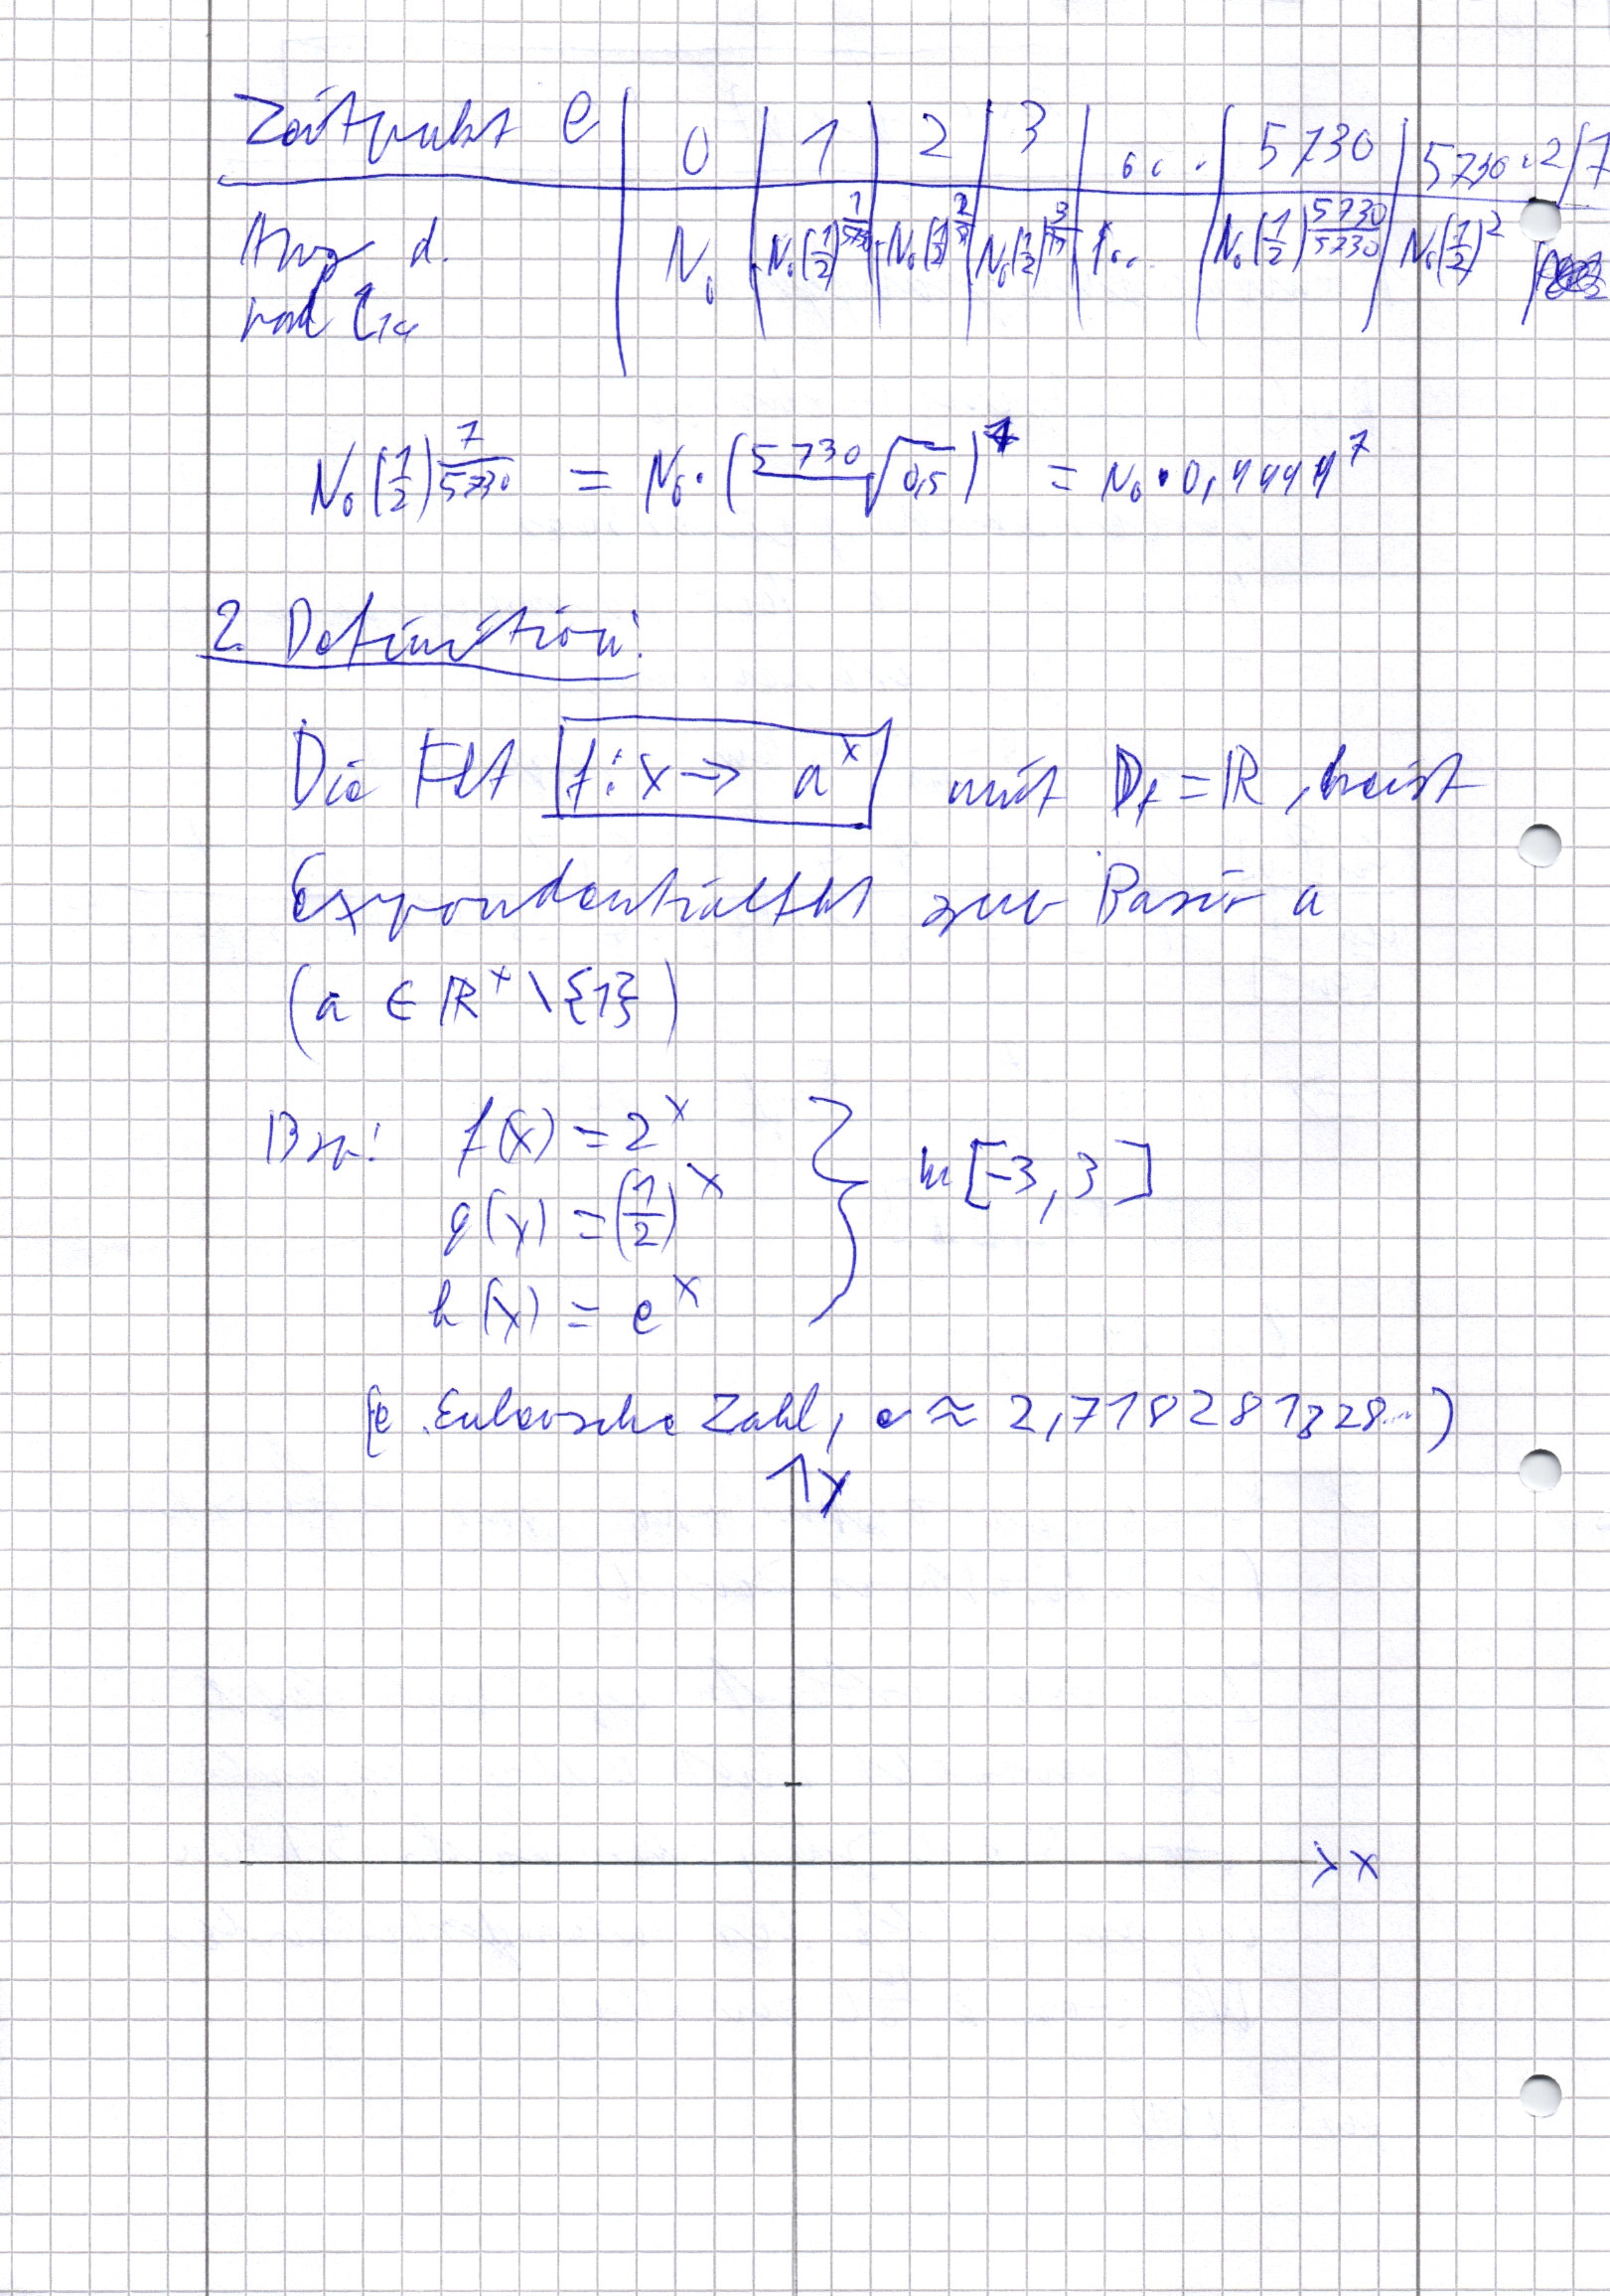 Zeitpukt t | 0 | 1 | 2 | 3 | ... | 5730 | 5730·2 | 7
Anz d. rad C₁₄ | N₀ | N₀(1/2)^(1/5730) | N₀(1/2)^(2/5730) | N₀(1/2)^(3/5730) | ... | N₀(1/2)^(5730/5730) | N₀(1/2)^2 |
N₀(1/2)^(7/5730) = N₀·(⁵⁷³⁰√0,5)^7 = N₀·0,9999^7
2. Definition:
Die Fkt f: x → a^x mit D_f = ℝ, heist
Expondentialfkt zur Basis a
(a ∈ ℝ⁺ \ {1})
Bsp: f(x) = 2^x
g(x) = (1/2)^x } in [-3, 3]
h(x) = e^x
(e Eulersche Zahl, e ≈ 2,718281828...)
y
x